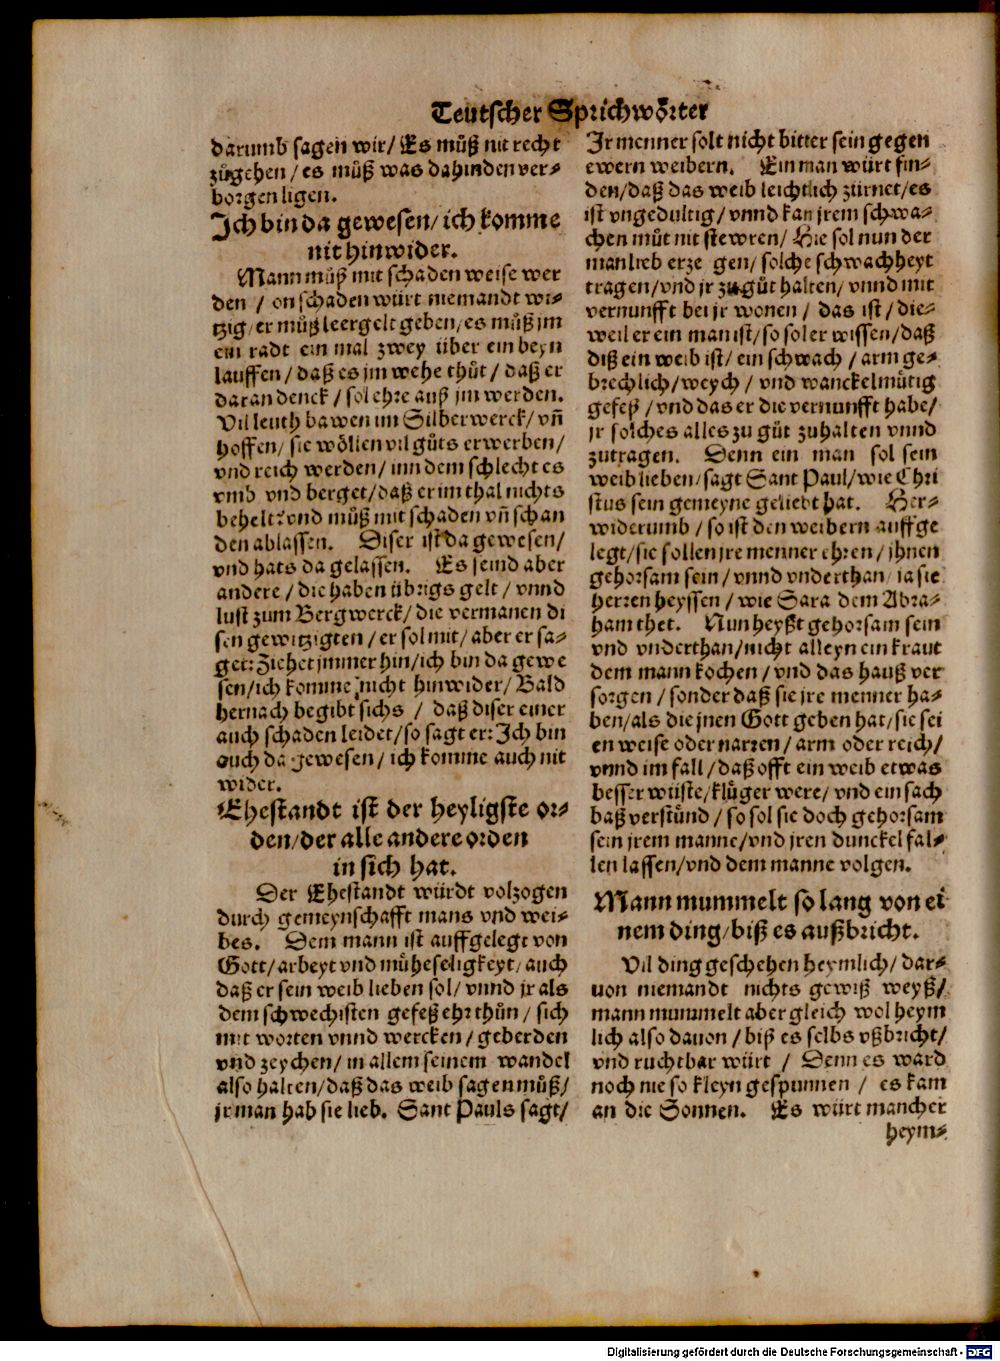 Teutscher Sprichwörter
darumb sagen wir/ Es můß nit recht
zůgehen/ es můß was dahinden ver-
borgen ligen.
Ich bin da gewesen/ ich komme
nit hinwider.
Mann můß mit schaden weise wer
den / on schaden würt niemandt wi-
tzig/ er můß leergelt geben/ es můß jm
ein radt ein mal zwey über ein beyn
lauffen/ daß es jm wehe thůt/ daß er
daran denck/ sol ehre auß jm werden.
Vil leuth bawen im Silberwerck/ vñ
hoffen/ sie wöllen vil gůts erwerben/
vnd reich werden/ inn dem schlecht es
vmb vnd berget/ daß er im thal nichts
behelt: vnd můß mit schaden vñ schan
den ablassen. Diser ist da gewesen/
vnd hats da gelassen. Es seind aber
andere/ die haben übrigs gelt/ vnnd
lust zum Bergwerck/ die vermanen di
sen gewitzigten/ er sol mit/ aber er sa-
get: Ziehet jmmer hin/ ich bin da gewe
sen/ ich komme nicht hinwider/ Bald
hernach begibt sichs / daß diser einer
auch schaden leidet/ so sagt er: Ich bin
auch da gewesen/ ich komme auch nit
wider.
Ehestandt ist der heyligste or-
den/ der alle andere orden
in sich hat.
Der Ehestandt würdt volzogen
durch gemeynschafft mans vnd wei-
bes. Dem mann ist auffgelegt von
Gott/ arbeyt vnd můheseligkeyt/ auch
daß er sein weib lieben sol/ vnnd jr als
dem schwechisten gefeß ehr thůn/ sich
mit worten vnnd wercken/ geberden
vnd zeychen/ in allem seinem wandel
also halten/ daß das weib sagen můß/
jr man hab sie lieb. Sant Pauls sagt/
Ir menner solt nicht bitter sein gegen
ewern weibern. Ein man würt fin-
den/ daß das weib leichtlich zürnet/ es
ist vngedultig/ vnnd kan jrem schwa-
chen můt nit stewren/ Hie sol nun der
man lieb erze gen/ solche schwachheyt
tragen/ vnd jr zu gůt halten/ vnnd mit
vernunfft bei jr wonen/ das ist/ die-
weil er ein man ist/ so sol er wissen/ daß
diß ein weib ist/ ein schwach / arm ge-
brechlich/ weych/ vnd wanckelmůtig
gefeß/ vnd das er die vernunfft habe/
jr solches alles zu gůt zuhalten vnnd
zutragen. Denn ein man sol sein
weib lieben/ sagt Sant Paul/ wie Chri
stus sein gemeyne geliebt hat. Her-
widerumb/ so ist den weibern auffge
legt/ sie sollen jre menner ehren/ jhnen
gehorsam sein/ vnnd vnderthan/ ja sie
herren heyssen/ wie Sara dem Abra-
ham thet. Nun heyßt gehorsam sein
vnd vnderthan/ nicht alleyn ein kraut
dem mann kochen/ vnd das hauß ver
sorgen/ sonder daß sie jre menner ha-
ben/ als die jnen Gott geben hat/ sie sei
en weise oder narren/ arm oder reich/
vnnd im fall/ daß offt ein weib etwas
besser wüste/ klůger were/ vnd ein sach
baß verstůnd/ so sol sie doch gehorsam
sein jrem manne/ vnd jren dunckel fal-
len lassen/ vnd dem manne volgen.
Mann mummelt so lang von ei
nem ding/ biß es außbricht.
Vil ding geschehen heymlich/ dar-
uon niemandt nichts gewiß weyß/
mann mummelt aber gleich wol heym
lich also dauon/ biß es selbs vßbricht/
vnd ruchtbar würt / Denn es ward
noch nie so kleyn gespunnen / es kam
an die Sonnen. Es würt mancher
heym-
Digitalisierung gefördert durch die Deutsche Forschungsgemeinschaft - DFG